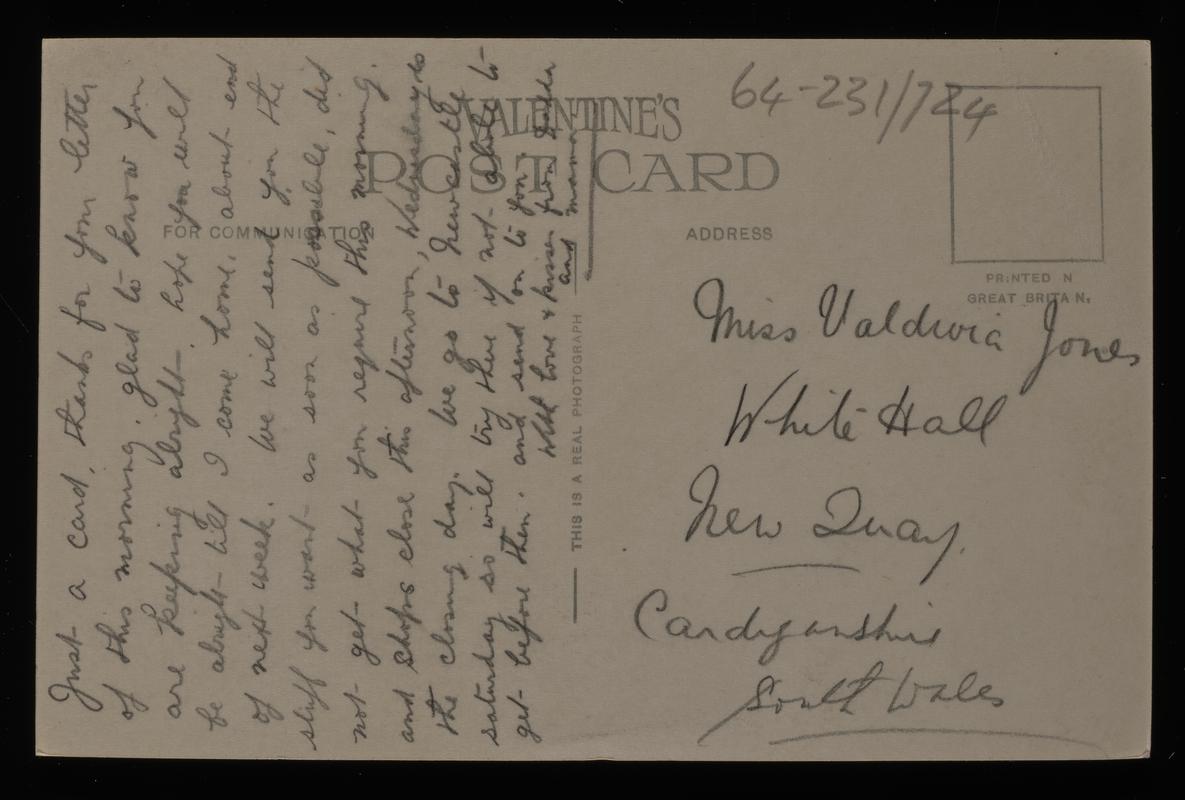 64-231/724
VALENTINE'S
POST CARD
FOR COMMUNICATION
ADDRESS
PRINTED N
GREAT BRITA N,
THIS IS A REAL PHOTOGRAPH
Just a card, thanks for your letter
of this morning. glad to know you
are keeping alright. hope you will
be alright till I come home, about end
of next week. We will send you the
stuff you want as soon as possible, did
not get what you require this morning.
and Shops close this afternoon, Wednesday is
the closing day. We go to Newcastle
saturday so will try there if not able to
get before then. and send on to you
With love & kisses from
and mama
Miss Valdivia Jones
White Hall
New Quay,
Cardiganshire
South Wales